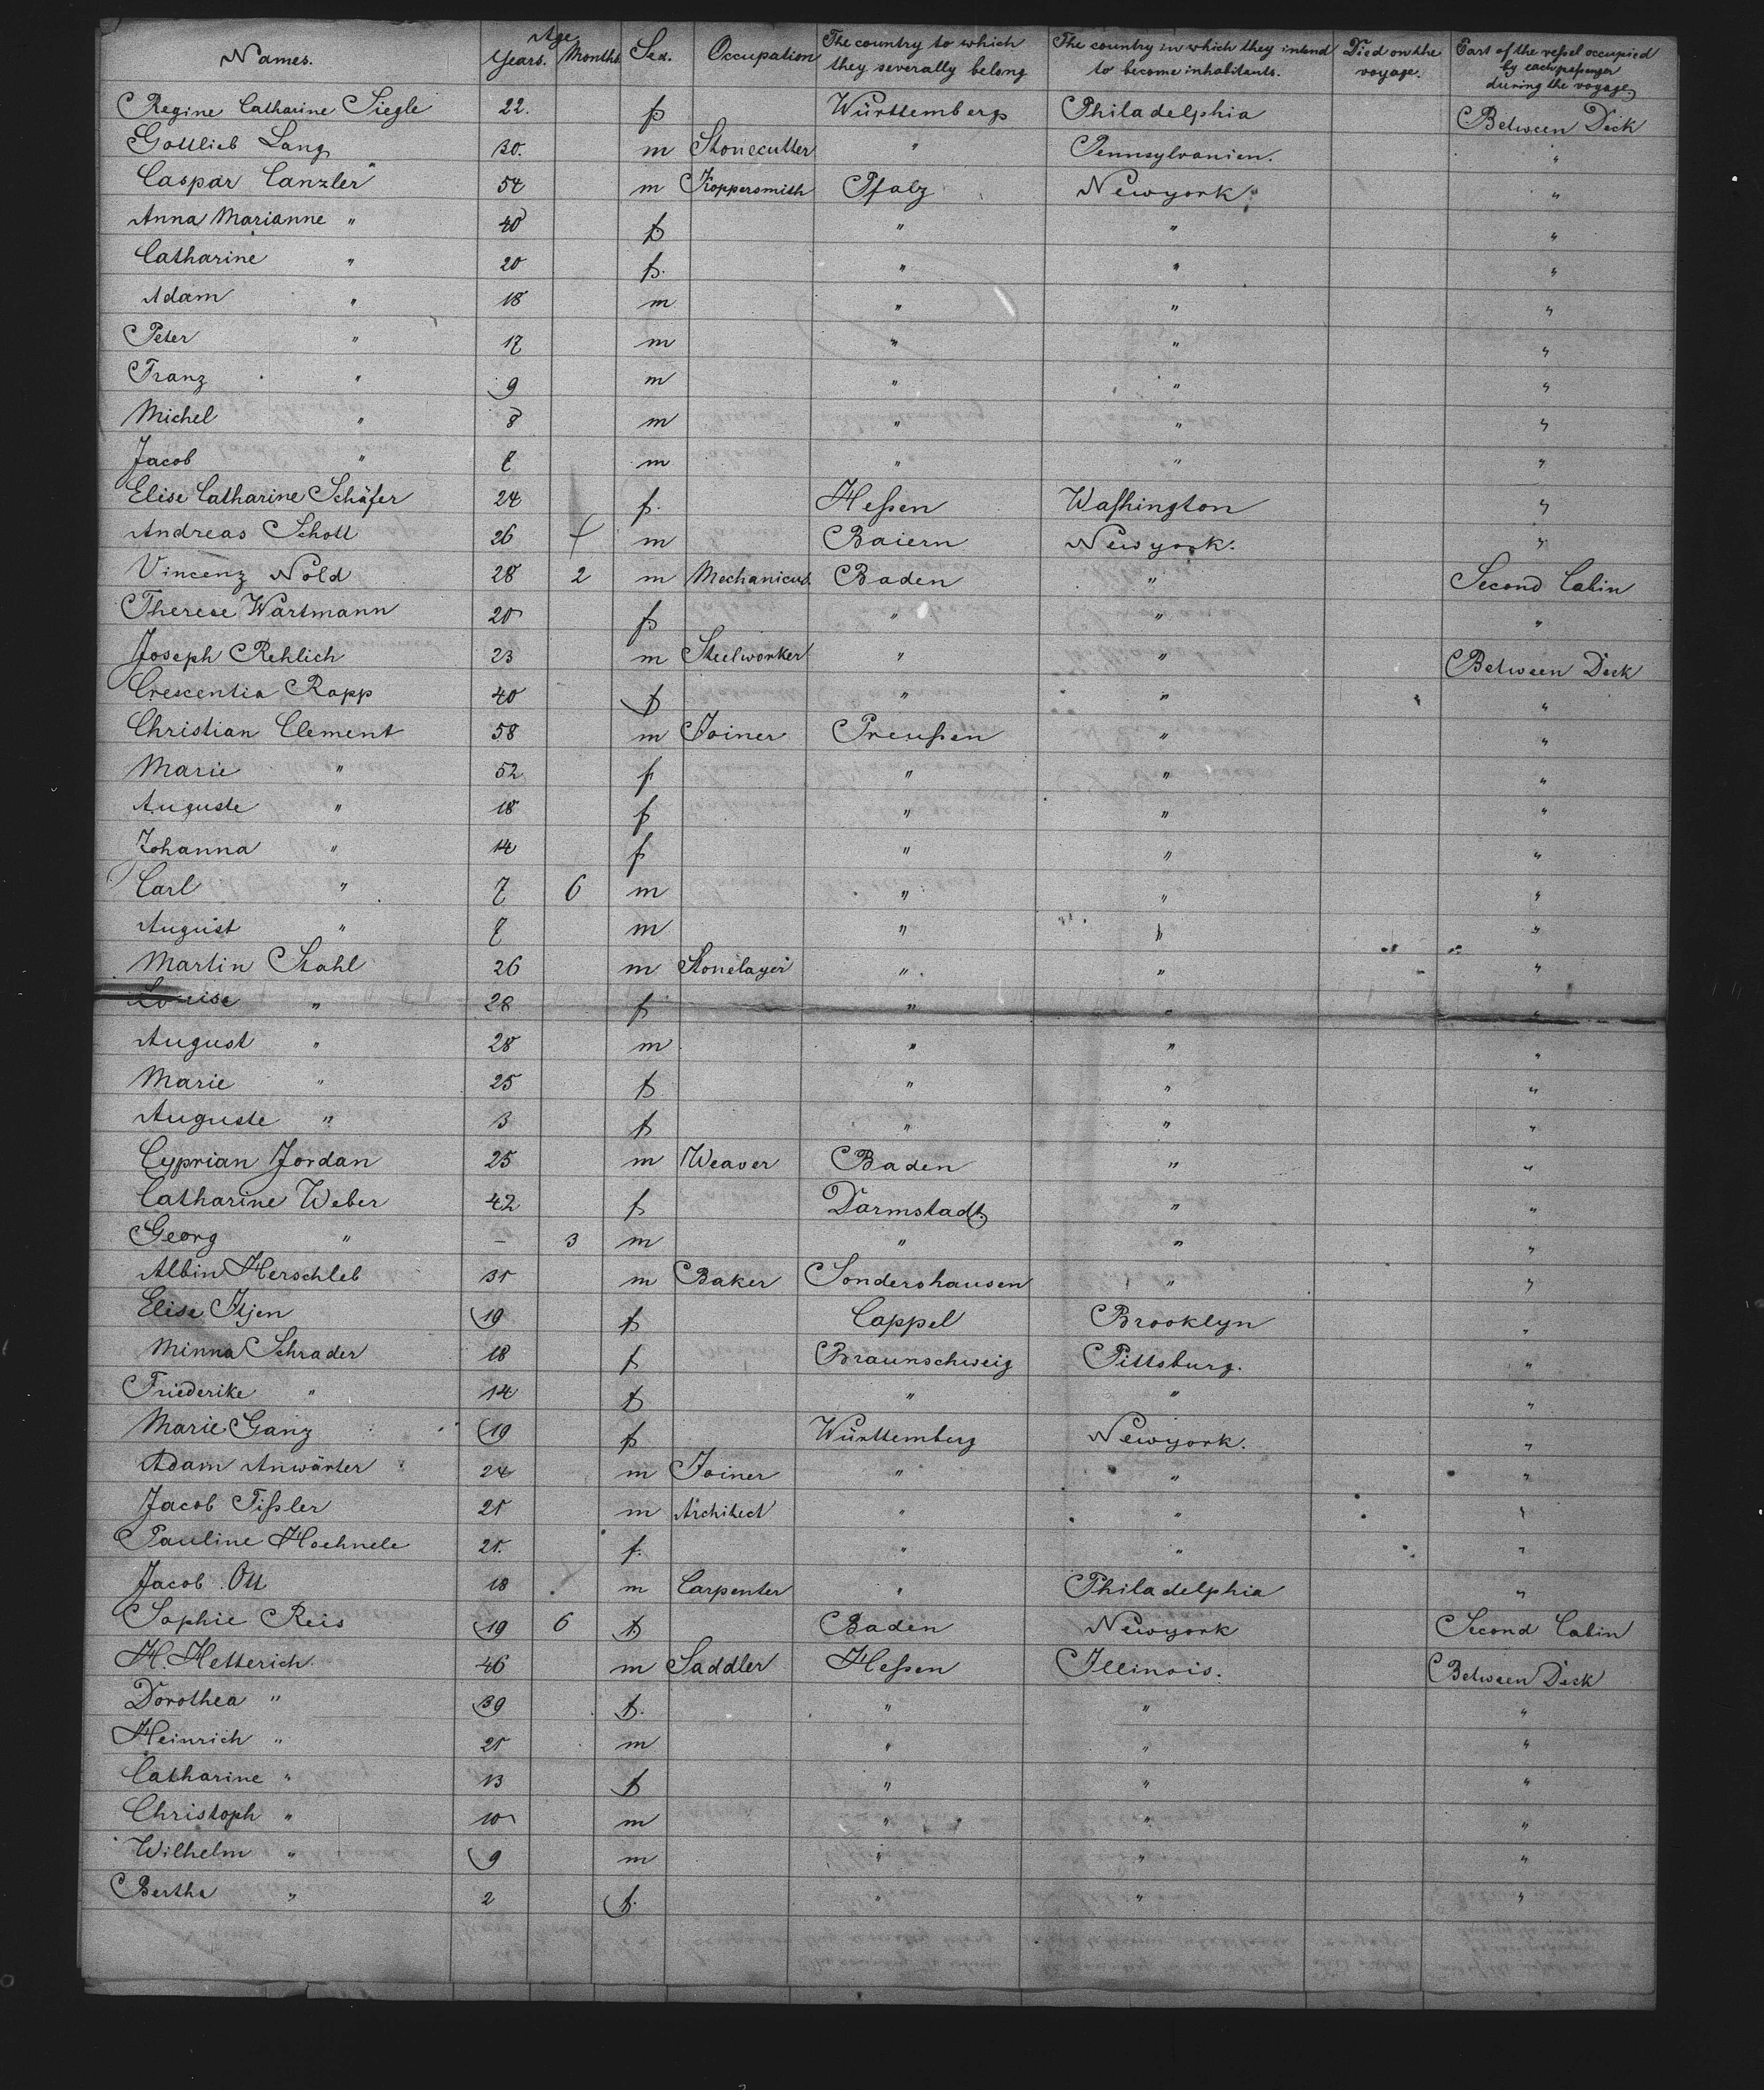 Names. Age Years. Months Sex. Occupation The country to which they severally belong The country in which they intend to become inhabitants. Died on the voyage. Part of the vessel occupied by each passenger during the voyage
Regine Catharine Siegle 22. f Württemberg Philadelphia Between Deck
Gottlieb Lang 30. m Stonecutter " Pennsylvanien. "
Caspar Canzler 54 m Koppersmith Pfalz Newyork "
Anna Marianne " 40 f " " "
Catharine " 20 f. " " "
Adam " 18 m " " "
Peter " 17 m " " "
Franz " 9 m " " "
Michel " 8 m " " "
Jacob " 7 m " " "
Elise Catharine Schäfer 24 f. Heßen Washington "
Andreas Schott 26 m Baiern Newyork. "
Vincenz Nold 28 2 m Mechanicus. Baden " Second Cabin
Therese Wartmann 20 f " " "
Joseph Rehlich 23 m Steelworker " " Between Deck
Crescentia Rapp 40 f " " "
Christian Clement 58 m Joiner Preußen " "
Marie " 52 f " " "
Auguste " 18 f " " "
Johanna " 14 f " " "
Carl " 7 6 m " " "
August " 7 m " " "
Martin Stahl 26 m Stonelayer " " "
Louise " 28 f " " "
August " 28 m " " "
Marie " 25 f " " "
Auguste " 3 f " " "
Cyprian Jordan 25 m Weaver Baden " "
Catharine Weber 42 f Darmstadt " "
Georg " – 3 m " " "
Albin Herschleb 31 m Baker Sondershausen " "
Elise Itjen 19 f Cappel Brooklyn "
Minna Schrader 18 f Braunschweig Pittsburg. "
Friederike " 14 f " " "
Marie Ganz 19 f Württemberg Newyork. "
Adam Anwärter 24 m Joiner " " "
Jacob Tißler 21 m Architect " " "
Pauline Hoehnele 21. f. " " "
Jacob Ott 18 m Carpenter " Philadelphia "
Sophie Reis 19 6 f. Baden Newyork Second Cabin
H. Hetterich 46 m Saddler Heßen Illinois. Between Deck
Dorothea " 39 f. " " "
Heinrich " 21 m " " "
Catharine " 13 f " " "
Christoph " 10 m " " "
Wilhelm " 9 m " " "
Bertha " 2 f. " " "